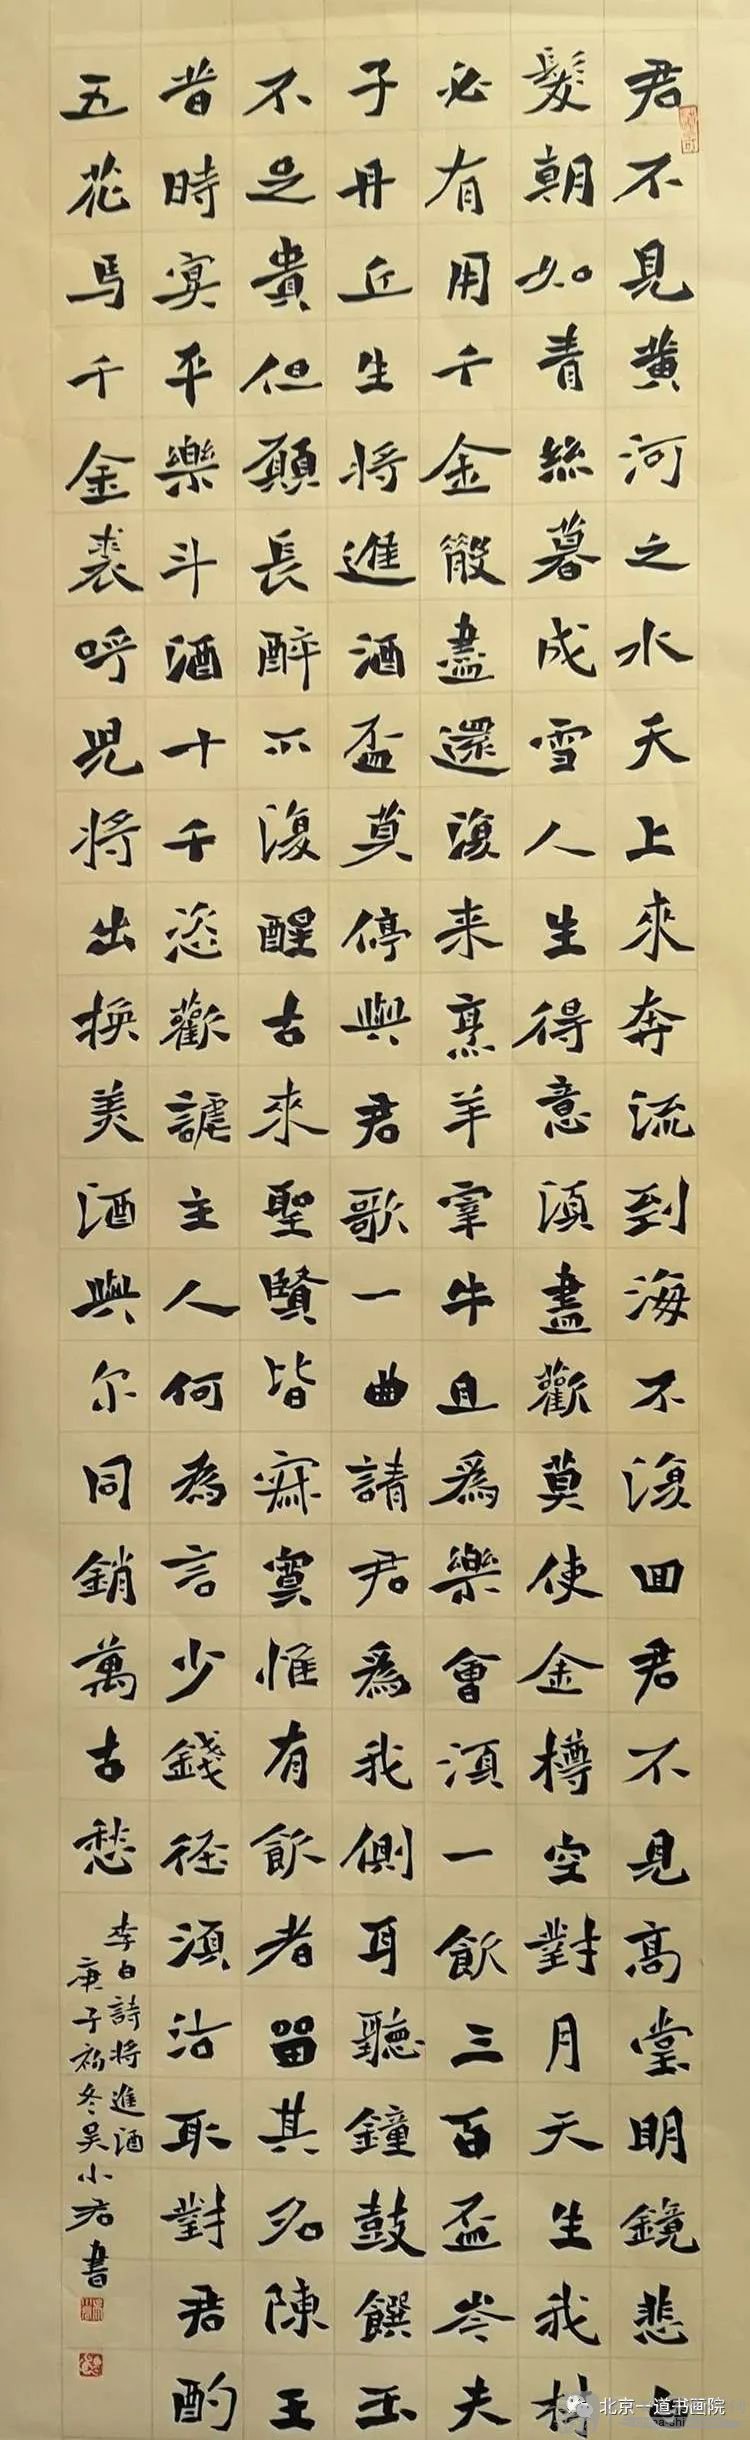 君不見黃河之水天上來奔流到海不復回君不見高堂明鏡悲白
髮朝如青絲暮成雪人生得意須盡歡莫使金樽空對月天生我材
必有用千金散盡還復来烹羊宰牛且為樂會須一飲三百盃岑夫
子丹丘生將進酒盃莫停與君歌一曲請君為我側耳聽鐘鼓饌玉
不足貴但願長醉不復醒古來聖賢皆寂寞惟有飲者留其名陳王
昔時宴平樂斗酒十千恣歡謔主人何為言少錢徑須沽取對君酌
五花馬千金裘呼兒將出換美酒與尔同銷萬古愁
李白詩將進酒
庚子初冬吳小君書
北京一道书画院